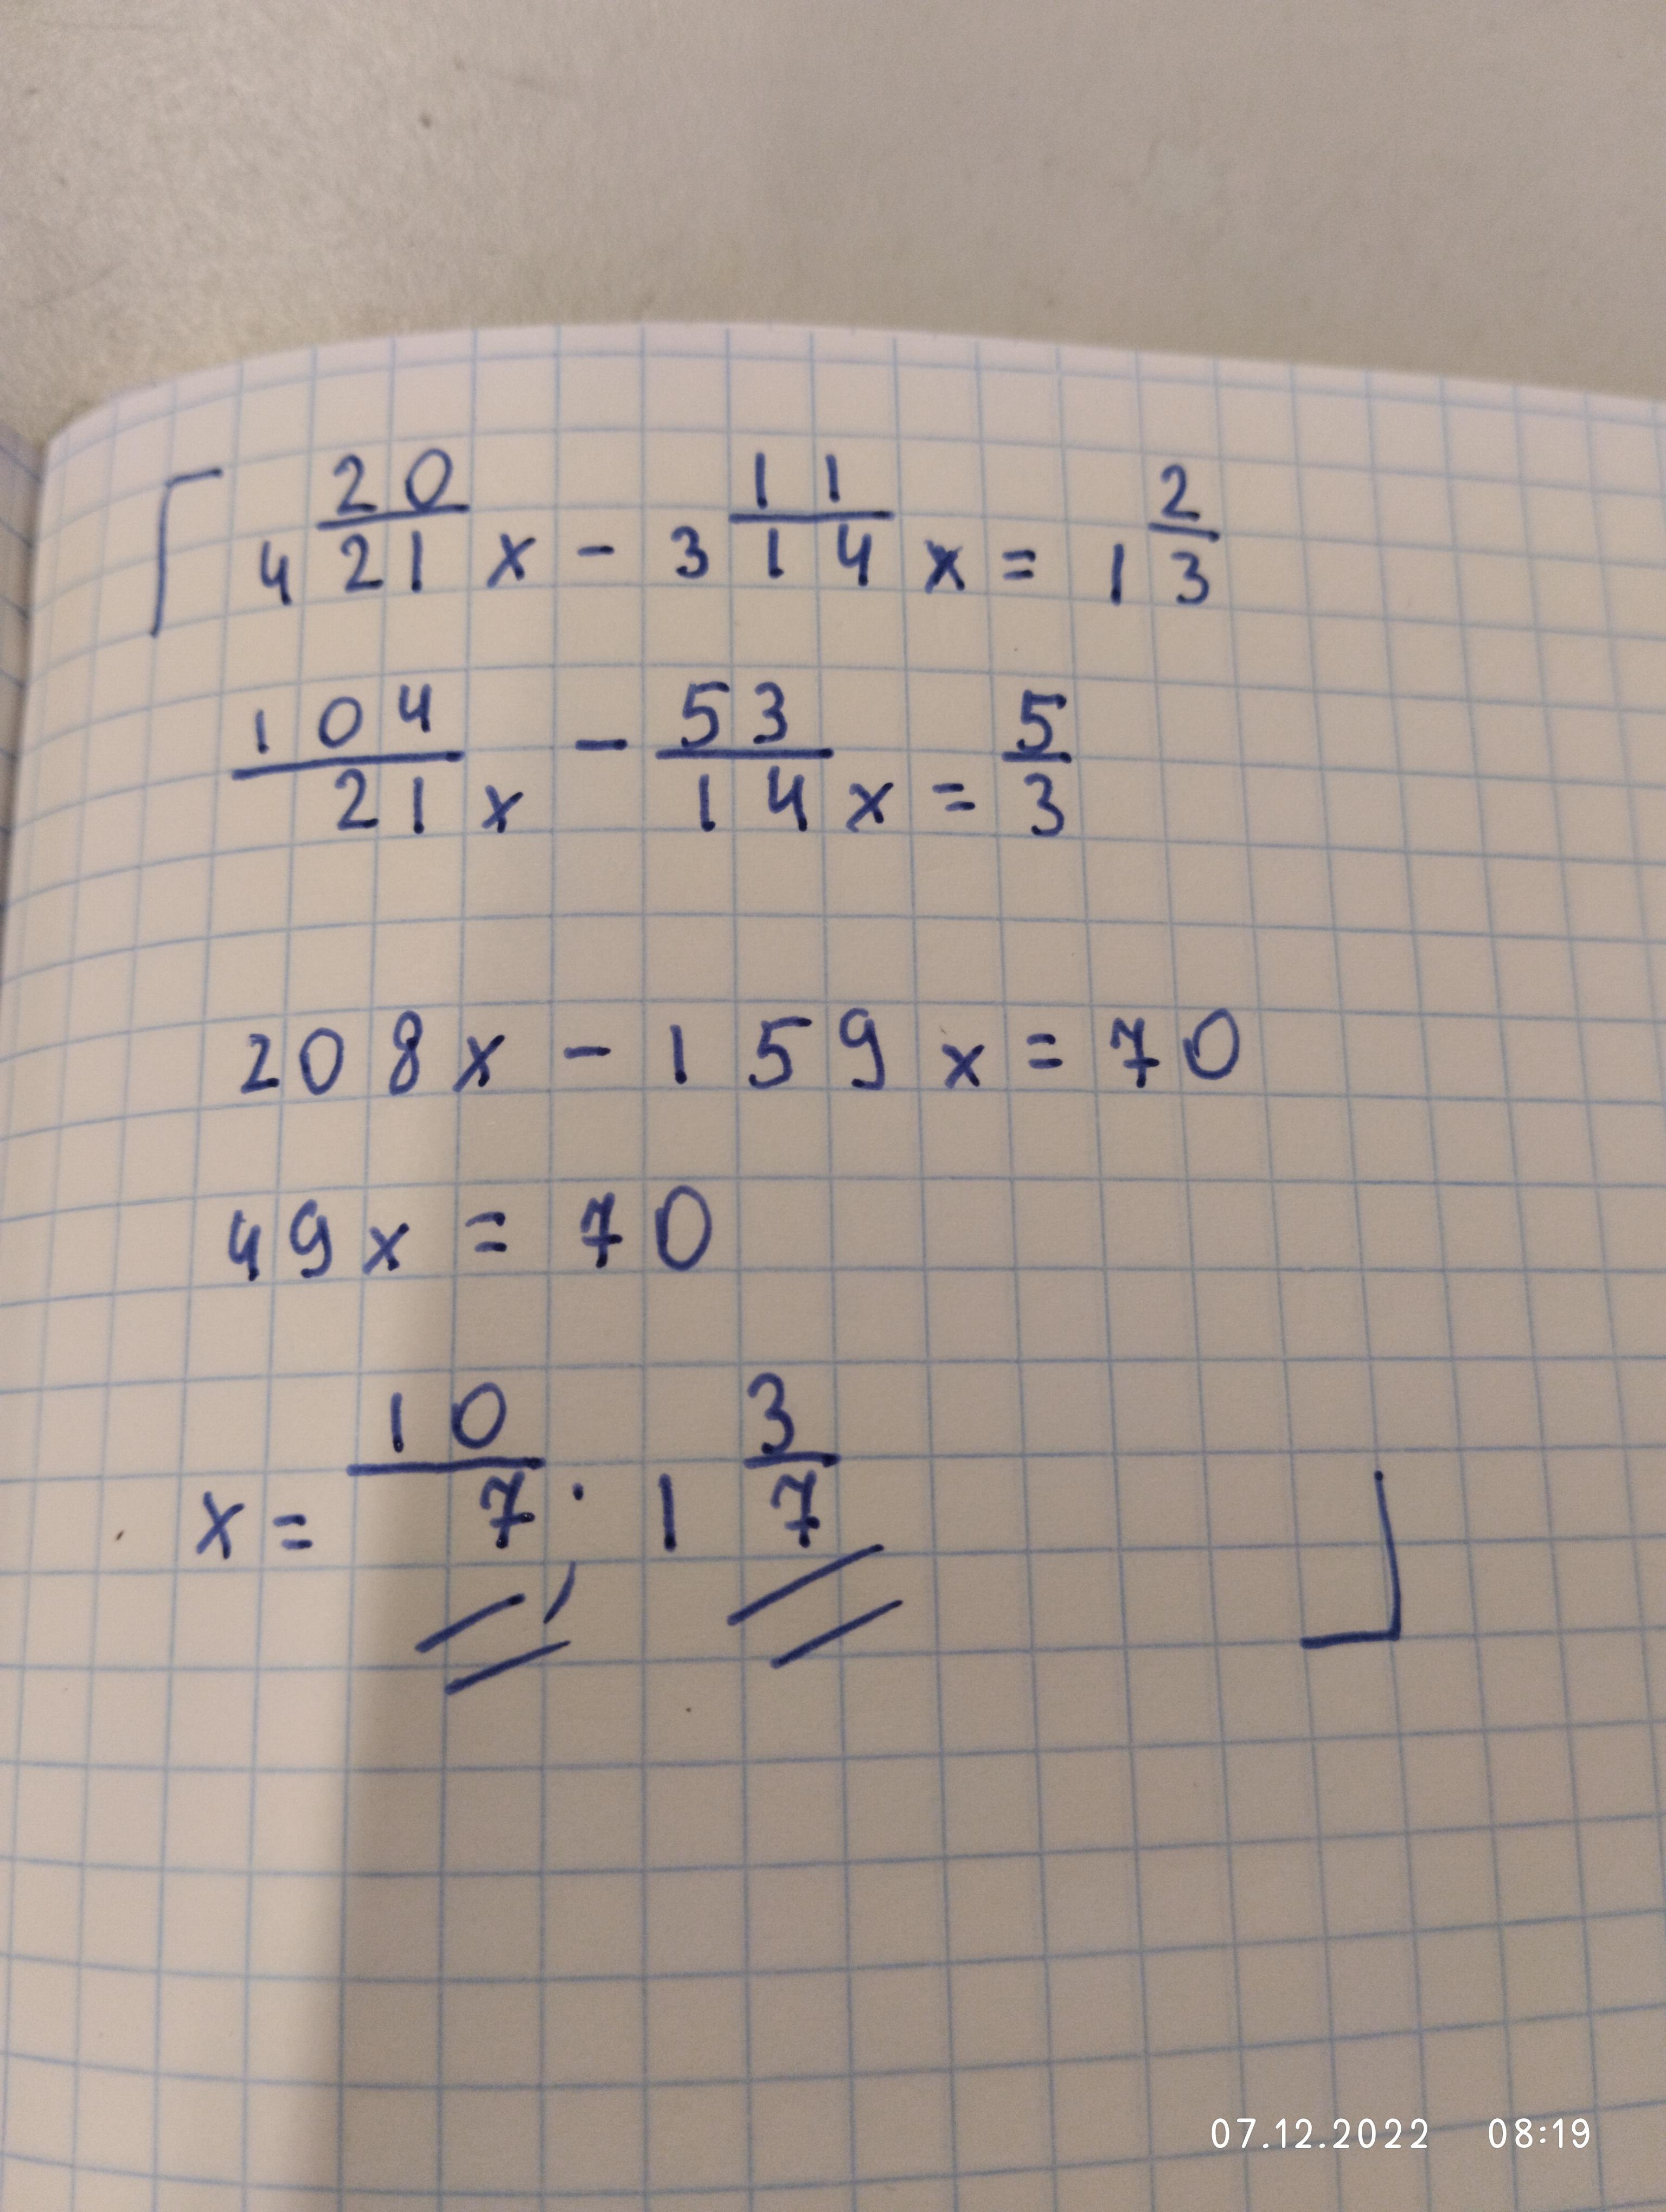 4 20/21 x - 3 11/14 x = 1 2/3
104/21 x - 53/14 x = 5/3
208x - 159x = 70
49x = 70
x = 10/7; 1 3/7
07.12.2022 08:19